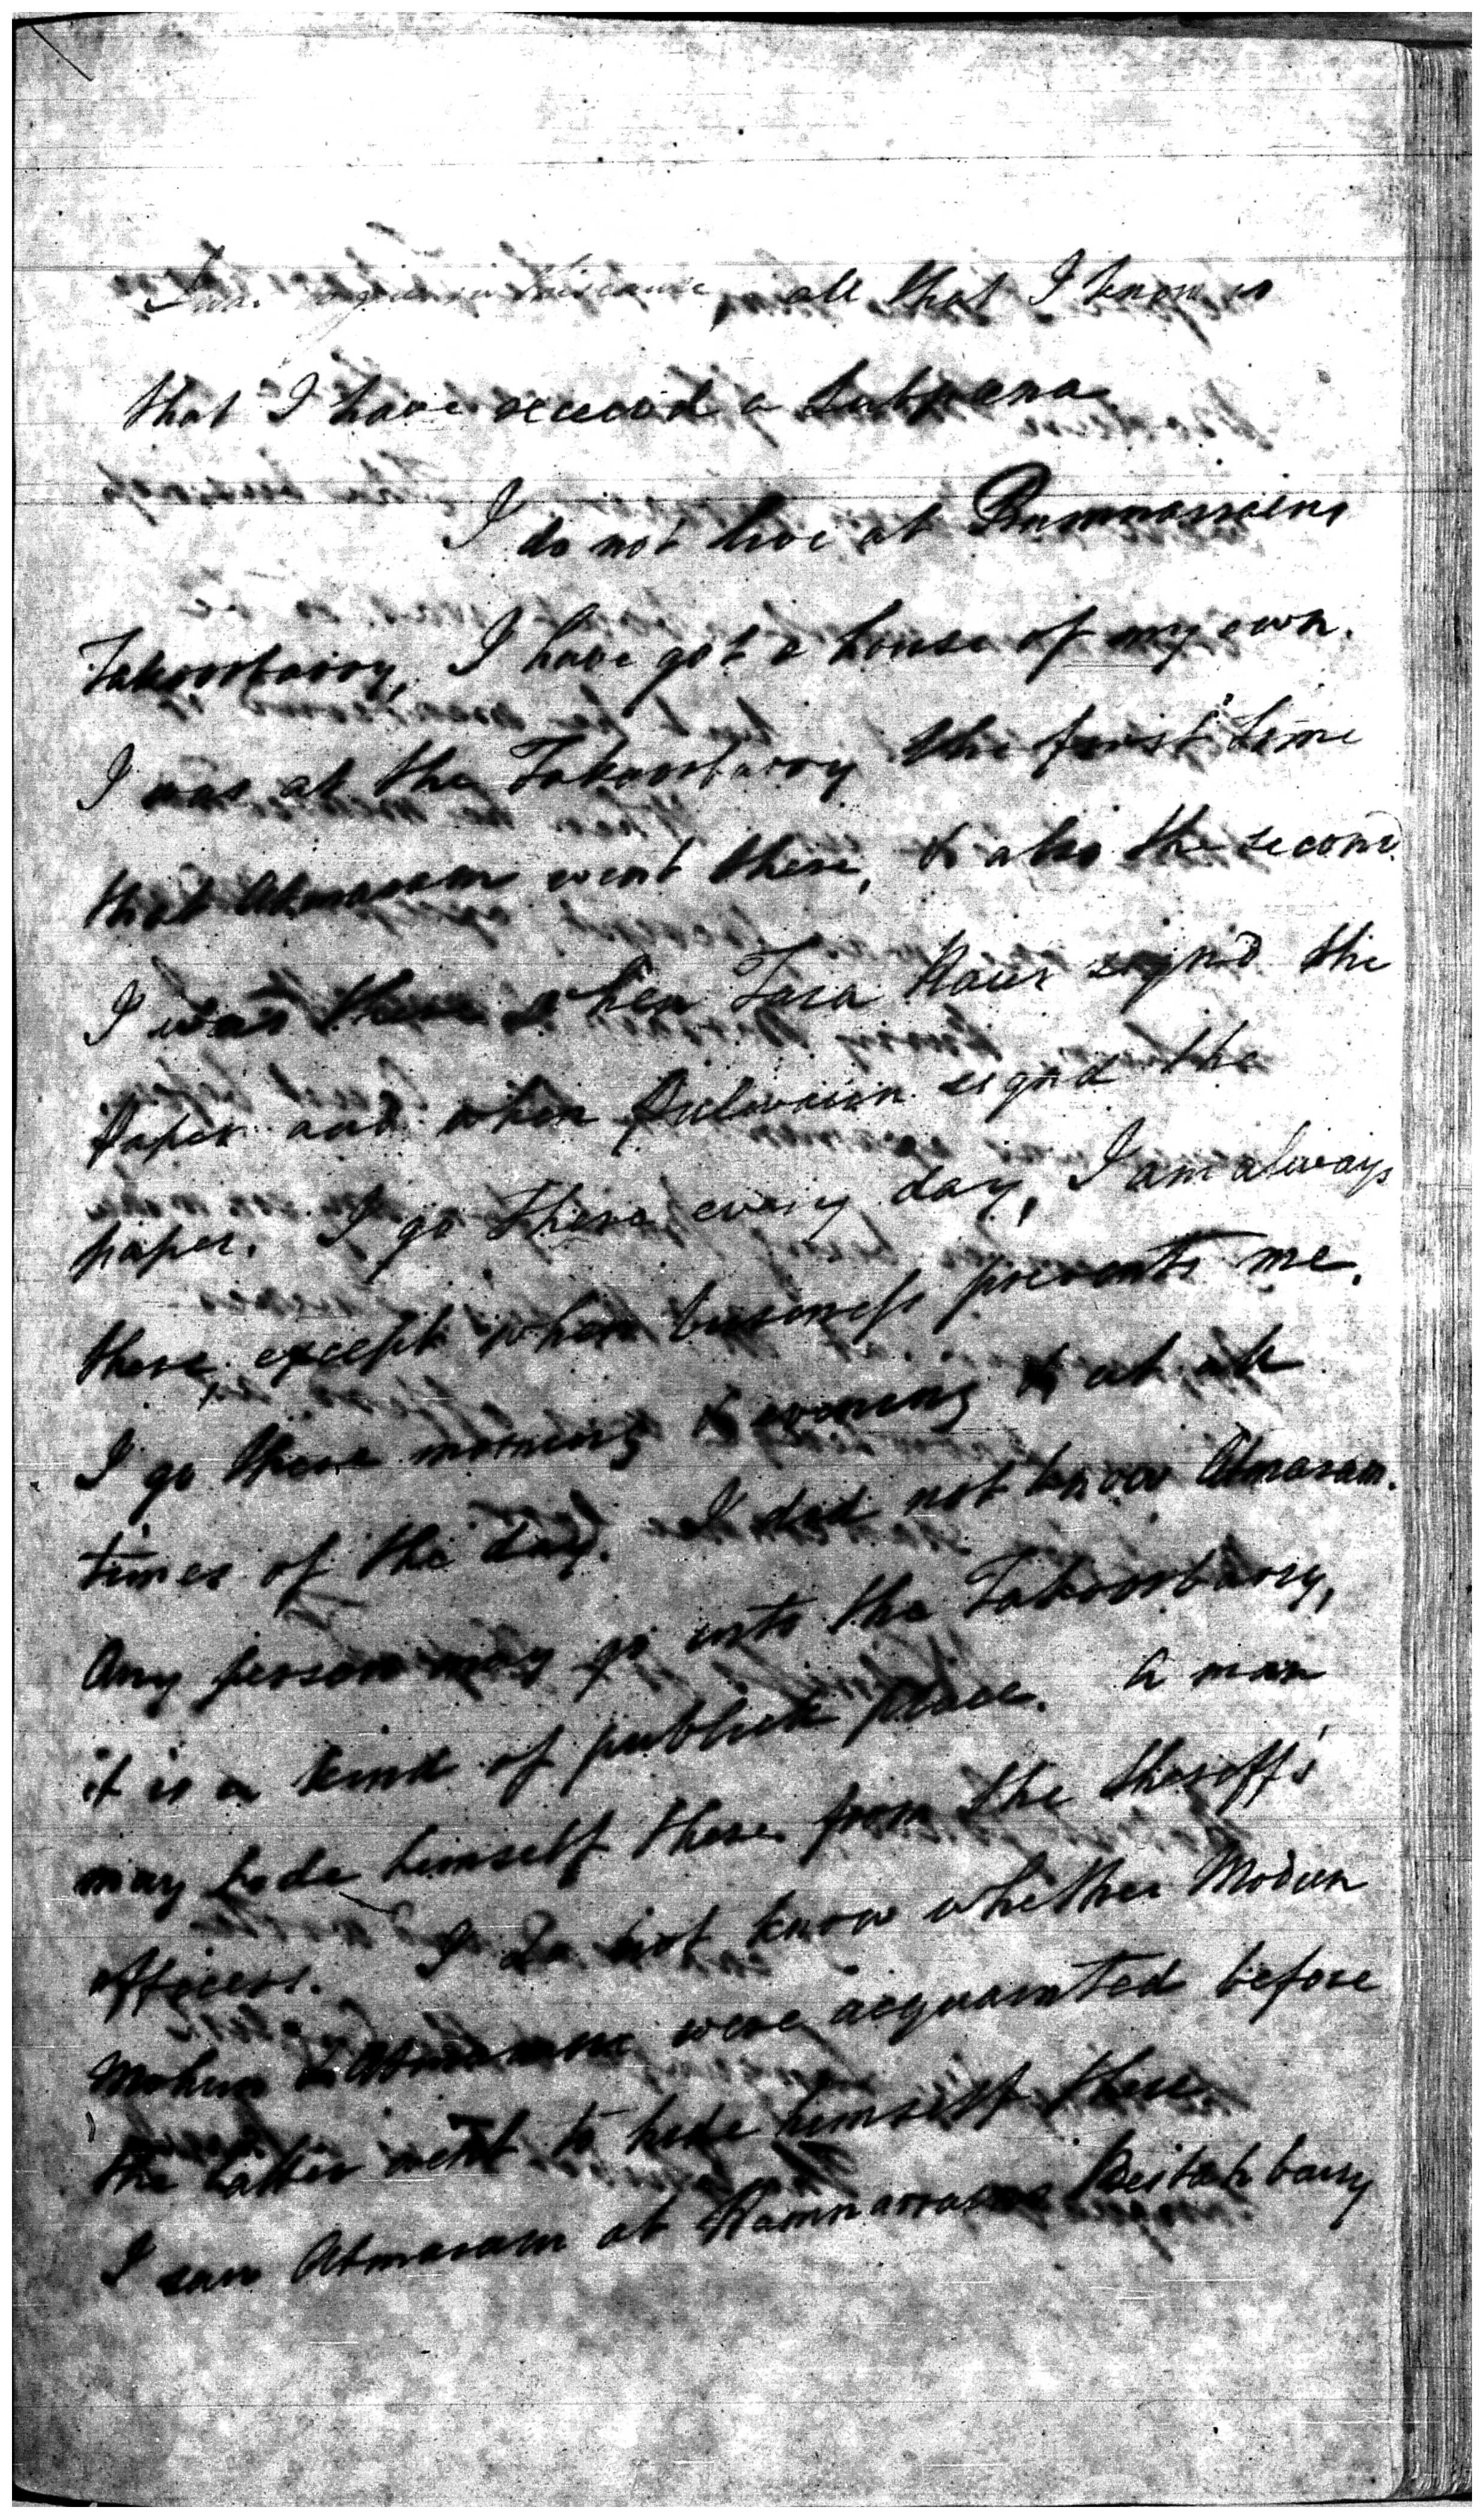 in this cause, all that I know is
that I have received a Subpœna.
I do not live at Ramnarrains
Takoorbarry, I have got a house of my own.
I was at the Takoorbarry the first time
that Atmaram went there, & also the second.
I was there when Tara signd the
Paper and when signd the
paper. I go there every day, I am always
there, except when business prevents me.
I go there morning & evening & at all
times of the day. I did not know Atmaram.
Any person may go into the Takoorbarry,
it is a kind of publick place. A man
may hide himself there from the Sheriff's
officers. I do not know whether Modun
Mohun & Atmaram were acquainted before
the latter went to hide himself there
I saw Atmaram at Ramnarrains Beitakbarry